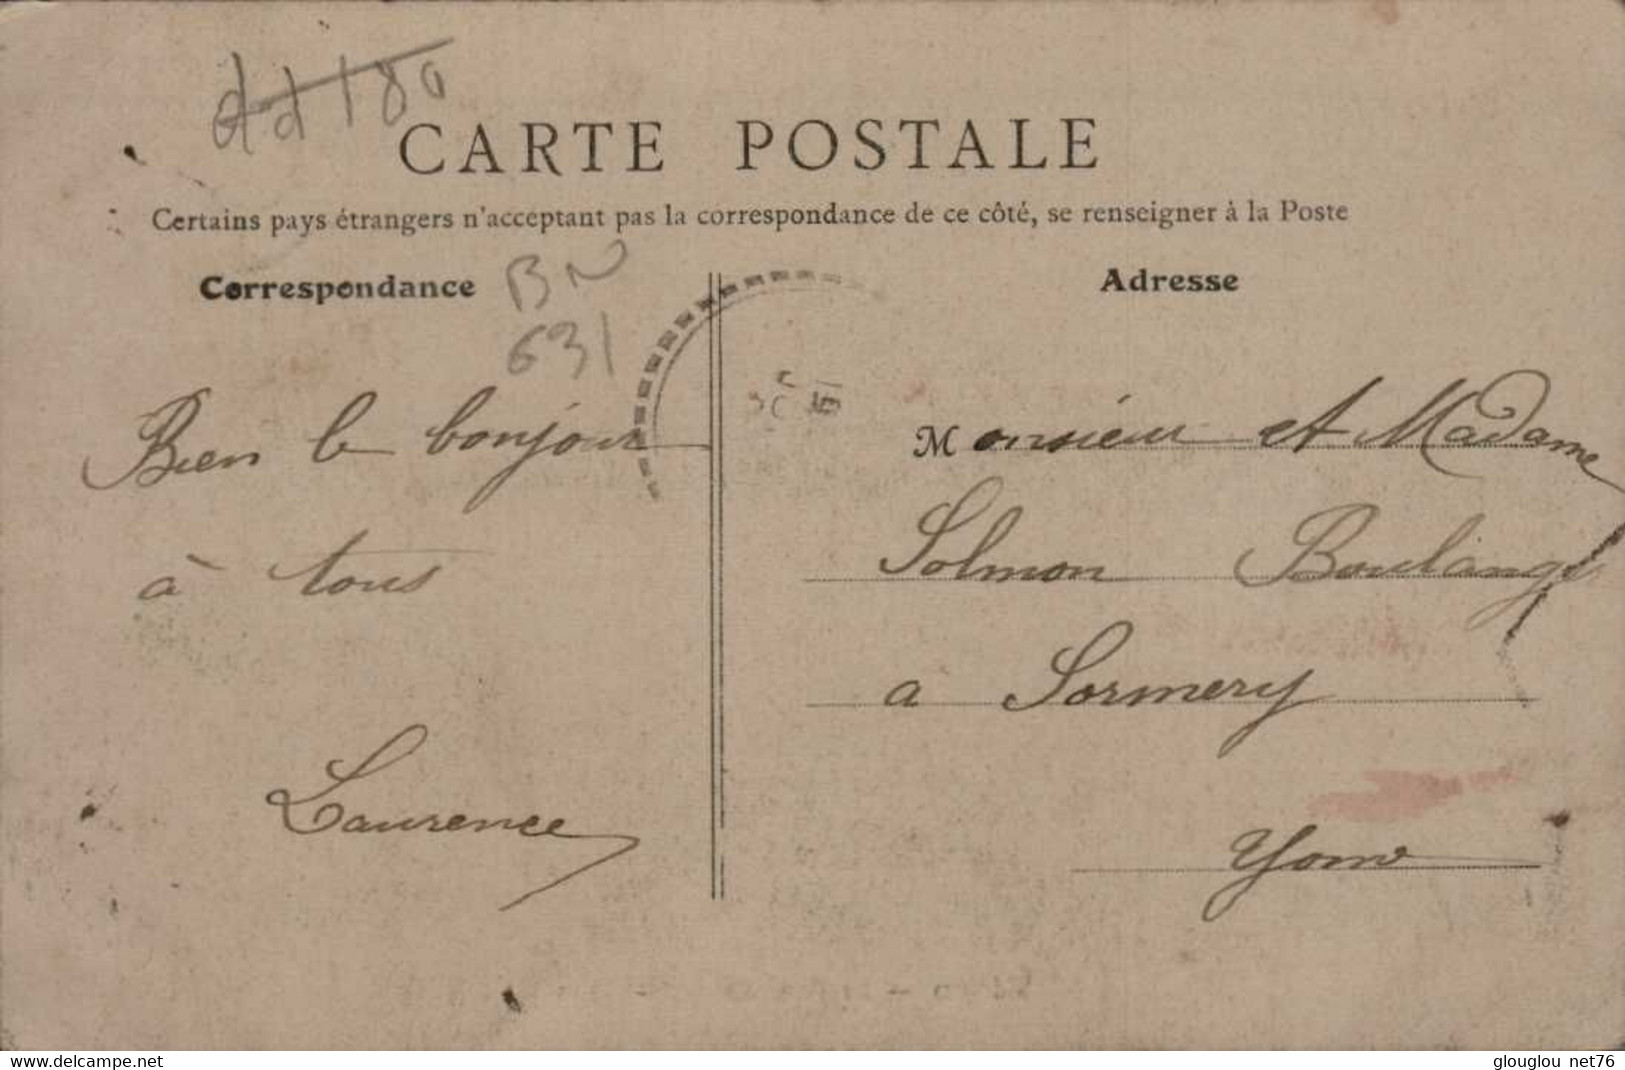 CARTE POSTALE
Certains pays étrangers n'acceptant pas la correspondance de ce côté, se renseigner à la Poste
Correspondance
BN
631
Bien le bonjour
à tous
Laurence
Adresse
Monsieur et Madame
Solmon Boulanger
a Sormery
Yonne
www.delcampe.net
glouglou net76